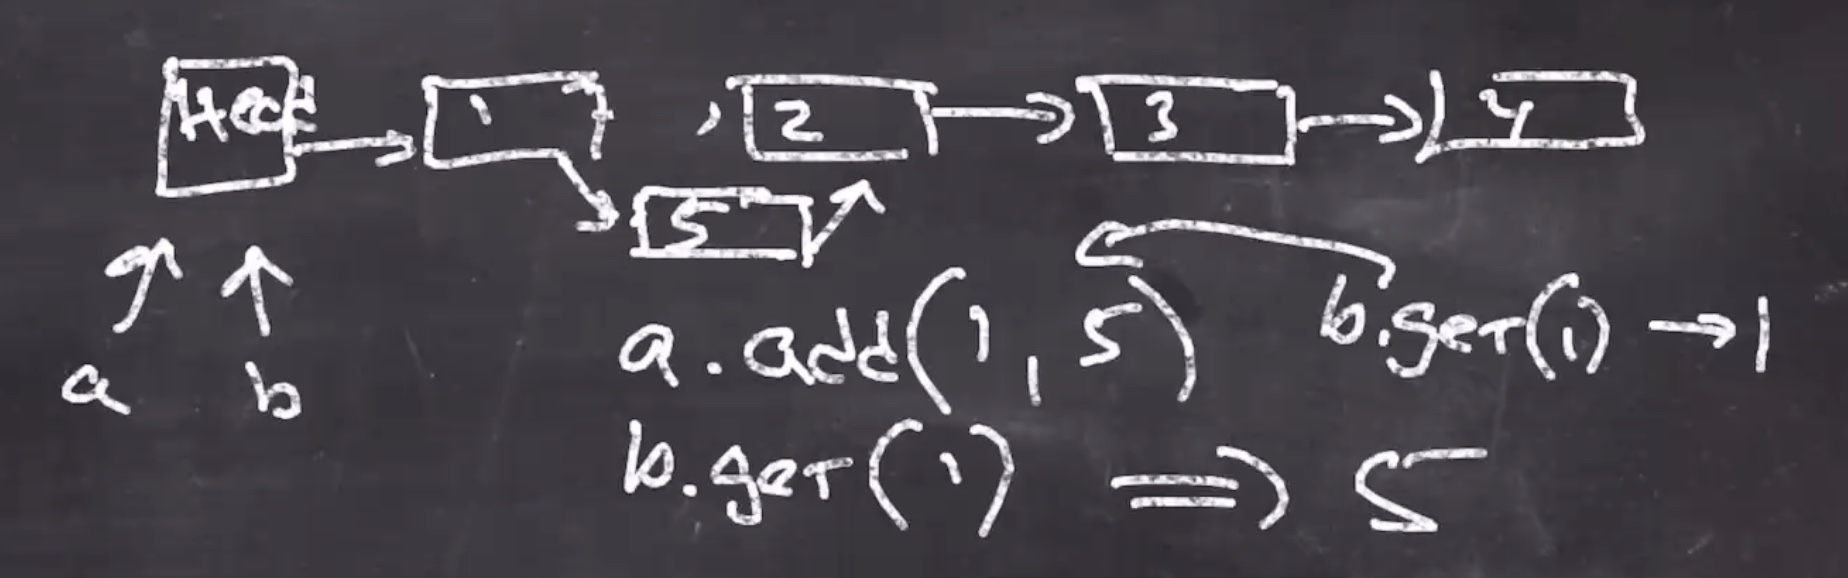 Head 1 2 3 4
5
a b
a.add(1,5) b.get(1) → 1
b.get(1) ⇒ 5